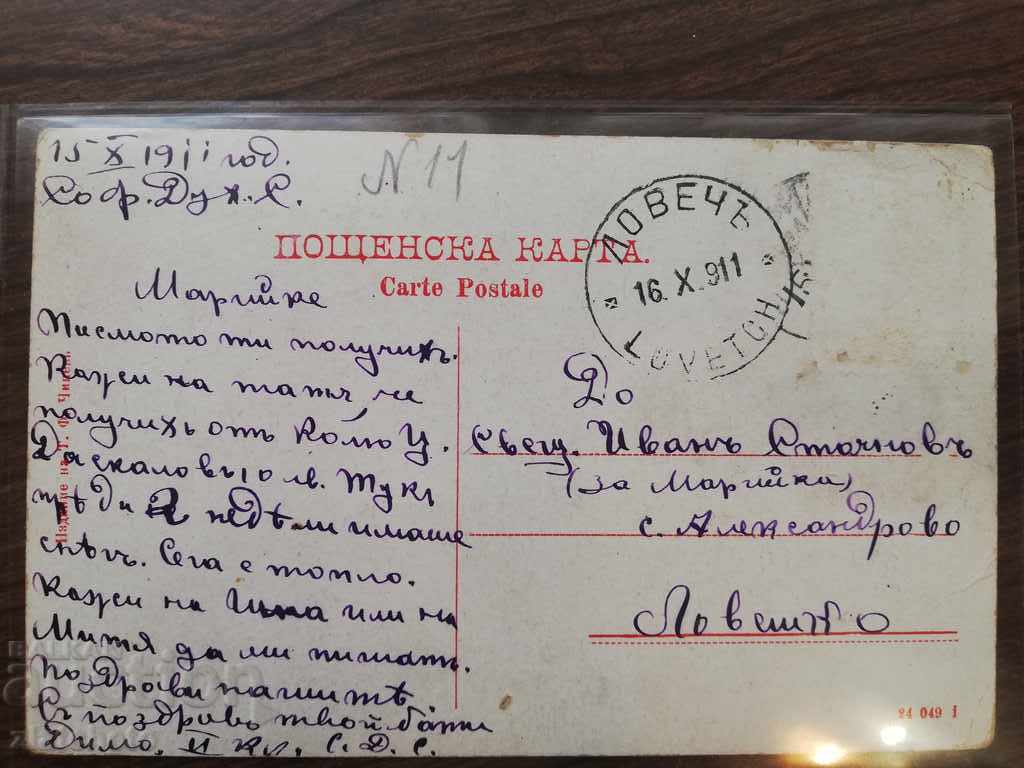 15 X 1911 год.
Соф. Дух. С.
N 11
ПОЩЕНСКА КАРТА.
Carte Postale
ЛОВЕЧЪ
16. X. 911
LOVETCH
Марийке
Писмото ти получихъ.
Кажи на татъ че
получихъ отъ Колю Ц.
Даскаловъ 10 лв. Тукъ
прѣди 2 недѣли имаше
снѣгъ. Сега е топло.
Кажи на или на
Митя да ми пишатъ.
Поздрави нашитѣ.
Съ поздравъ твой бати
Димо. II кл. С. Д. С.
Издание на
До
Свещ. Иванъ Стойновъ
(за Марийка)
с. Александрово
Ловешко
24 049 i